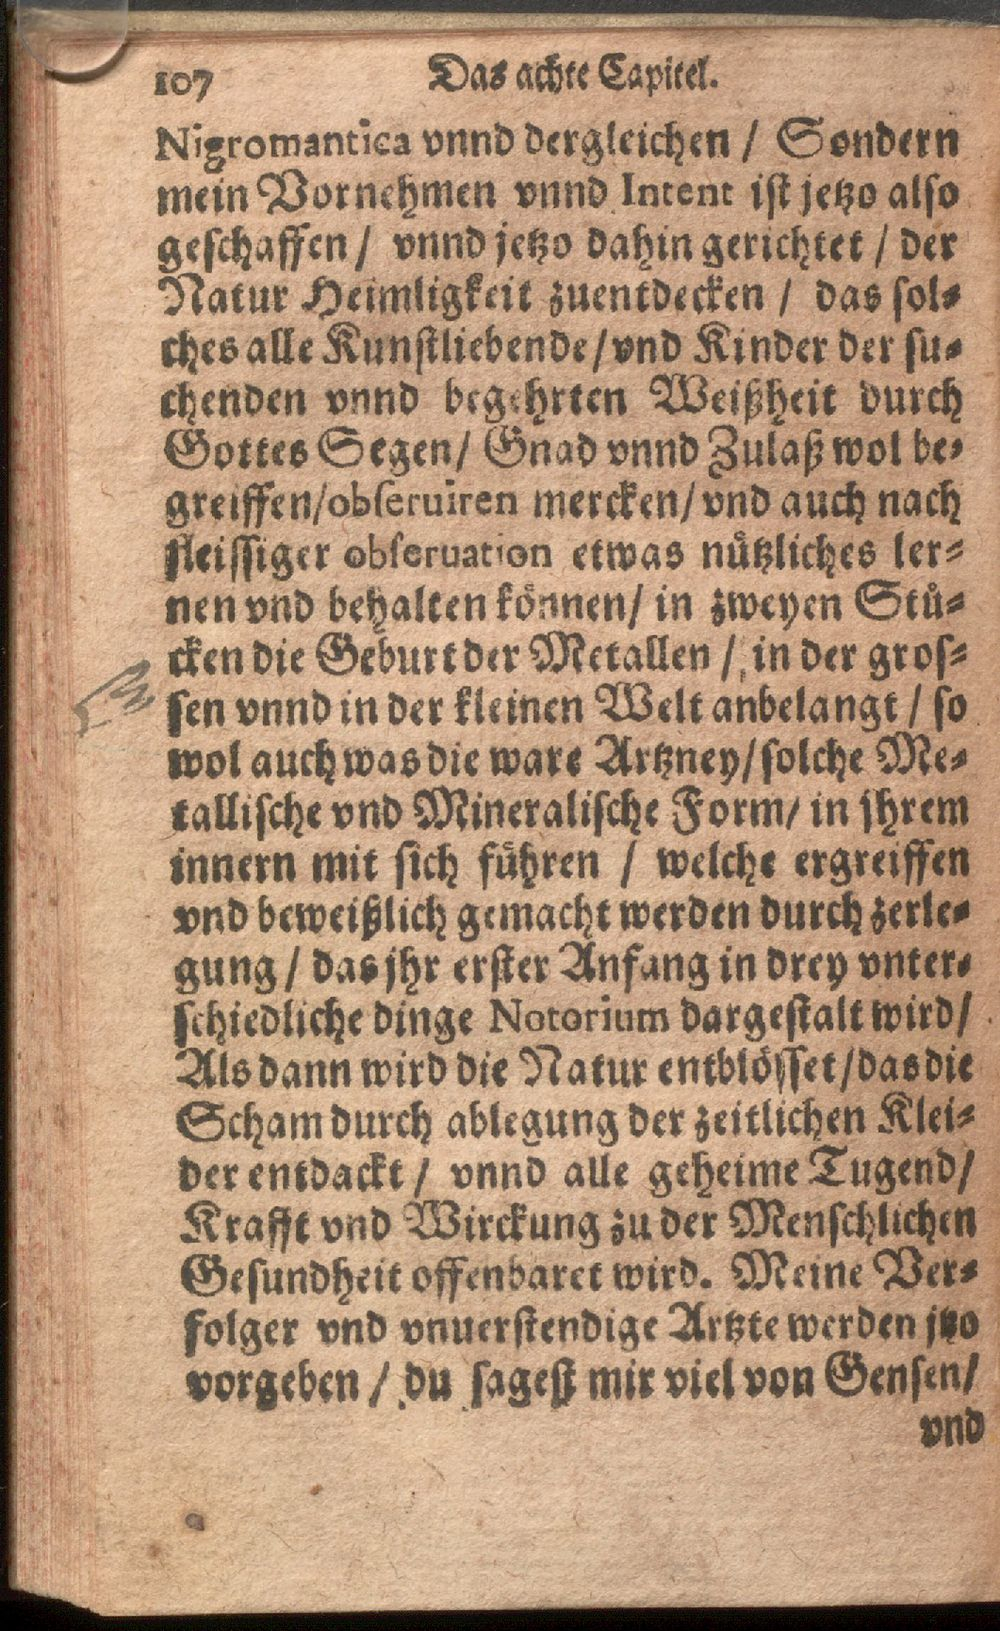 107 Das achte Capitel.
Nigromantica vnnd dergleichen / Sondern
mein Vornehmen vnnd Intent ist jetzo also
geschaffen / vnnd jetzo dahin gerichtet / der
Natur Heimligkeit zuentdecken / das sol⸗
ches alle Kunstliebende / vnd Kinder der su⸗
chenden vnnd begehrten Weißheit durch
Gottes Segen / Gnad vnnd Zulaß wol be⸗
greiffen / obseruiren mercken / vnd auch nach
fleissiger obseruation etwas nützliches ler⸗
nen vnd behalten können / in zweyen Stü⸗
cken die Geburt der Metallen / in der gros⸗
sen vnnd in der kleinen Welt anbelangt / so
wol auch was die ware Artzney / solche Me⸗
tallische vnd Mineralische Form / in jhrem
innern mit sich führen / welche ergreiffen
vnd beweißlich gemacht werden durch zerle⸗
gung / das jhr erster Anfang in drey vnter⸗
schiedliche dinge Notorium dargestalt wird /
Als dann wird die Natur entblösset / das die
Scham durch ablegung der zeitlichen Klei⸗
der entdackt / vnnd alle geheime Tugend /
Krafft vnd Wirckung zu der Menschlichen
Gesundheit offenbaret wird. Meine Ver⸗
folger vnd vnuerstendige Artzte werden jtzo
vorgeben / du sagest mir viel von Gensen /
vnd